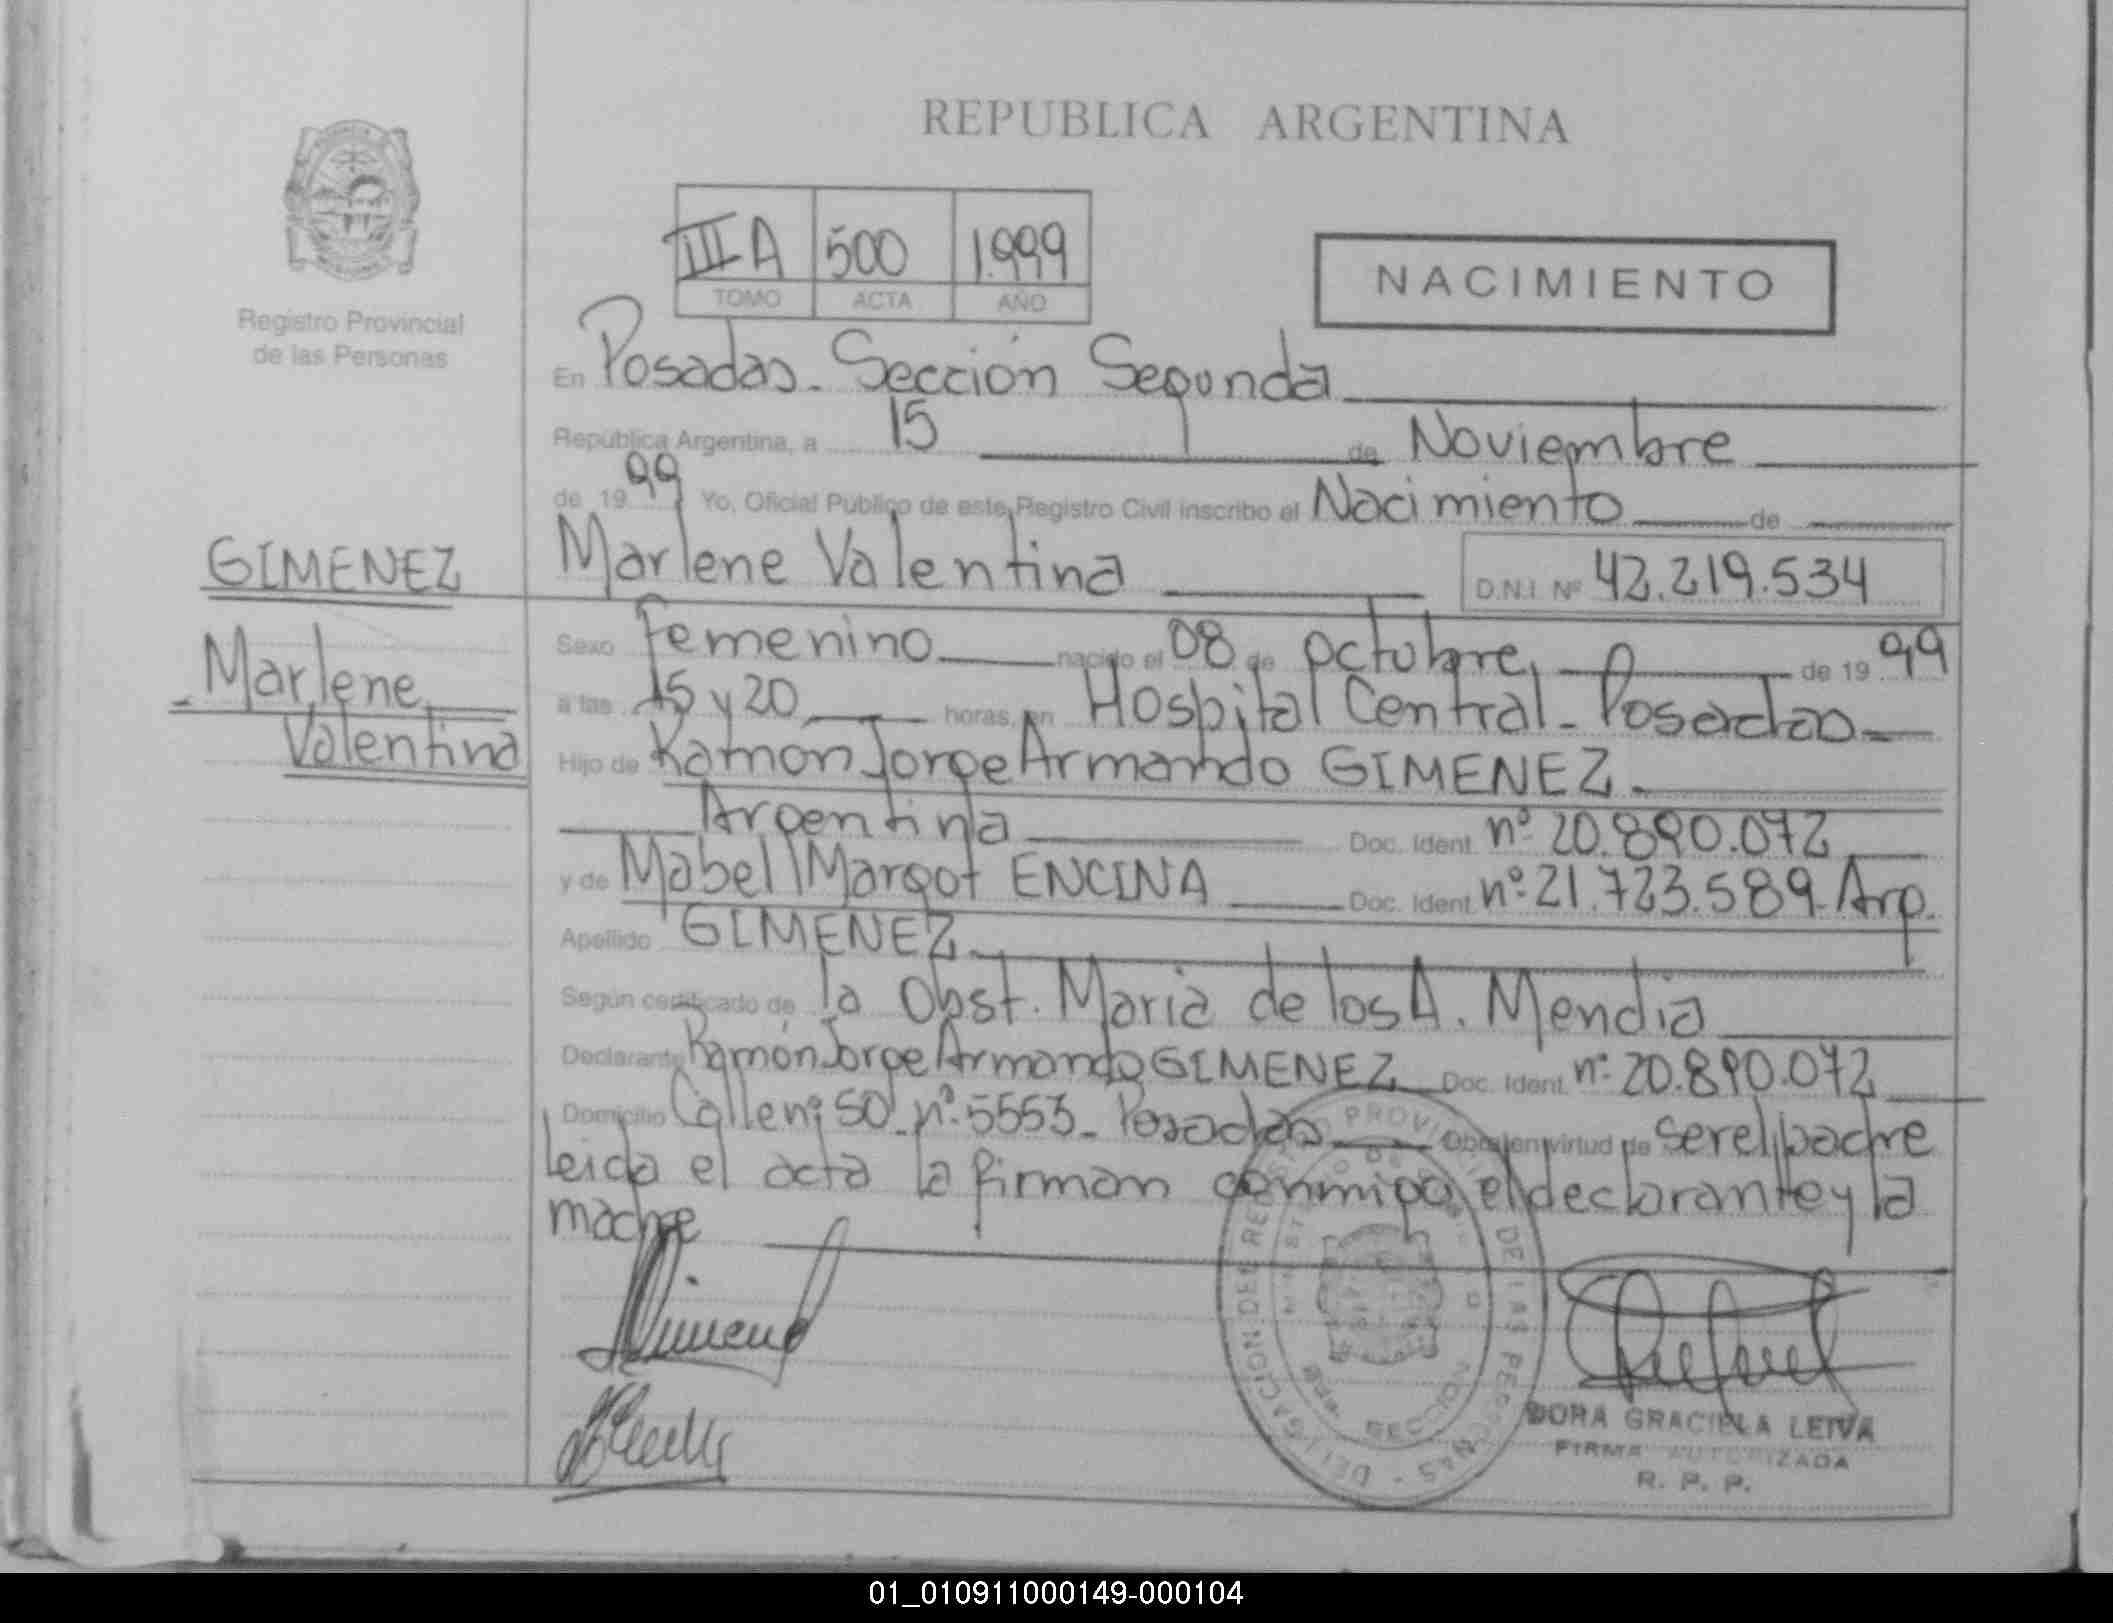 REPUBLICA ARGENTINA
III A 500 1.999
TOMO ACTA AÑO
NACIMIENTO
Registro Provincial
de las Personas
En Posadas. Sección Segunda
República Argentina, a 15 de Noviembre
de 1999 Yo, Oficial Público de este Registro Civil inscribo el Nacimiento de
GIMENEZ
Marlene Valentina D.N.I. Nº 42.219.534
Marlene
Valentina
Sexo femenino nacido el 08 de octubre, de 1999
a las 15 y 20 horas, en Hospital Central - Posadas
Hijo de Ramón Jorge Armando GIMENEZ.
Argentina Doc. Ident. nº 20.890.072
y de Mabel Margot ENCINA Doc. Ident. nº 21.723.589. Arg.
Apellido GIMENEZ
Según certificado de la Obst. Maria de los A. Mendia
Declarante Ramón Jorge Armando GIMENEZ Doc. Ident. nº 20.890.072
Domicilio Calle nº 50 nº 5553 - Posadas Obra en virtud de ser el padre
leida el acta la firman conmigo el declarante y la
madre
DELEGACION DEL REGISTRO PROVINCIAL DE LAS PERSONAS
SECCION
DORA GRACIELA LEIVA
FIRMA AUTORIZADA
R. P. P.
01_010911000149-000104